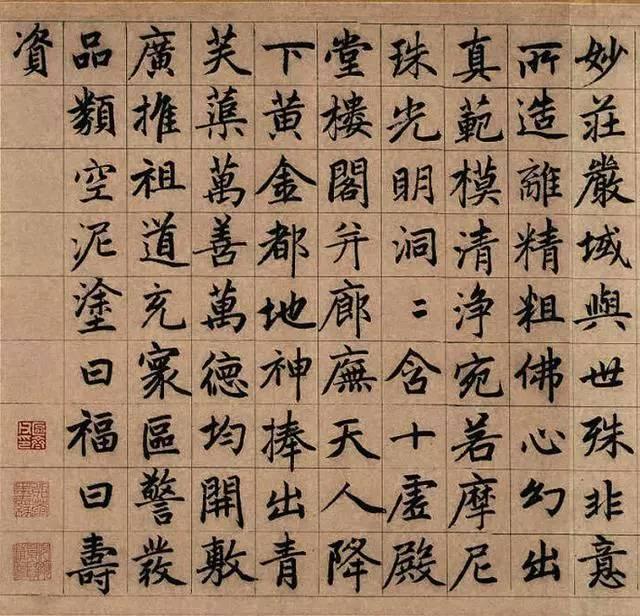 妙莊嚴域與世殊非意
所造離精粗佛心幻出
真範模清淨宛若摩尼
珠光明洞〻含十虛殿
堂樓閣并廊廡天人降
下黃金都地神捧出青
芙蕖萬善萬德均開敷
廣推祖道充寰區警發
品類空泥塗曰福曰壽
資